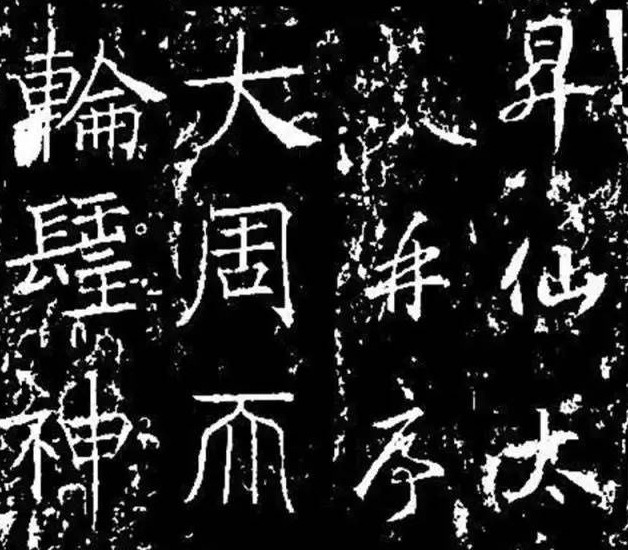 昇仙太
并序
大周𠀑
輪𨲢神